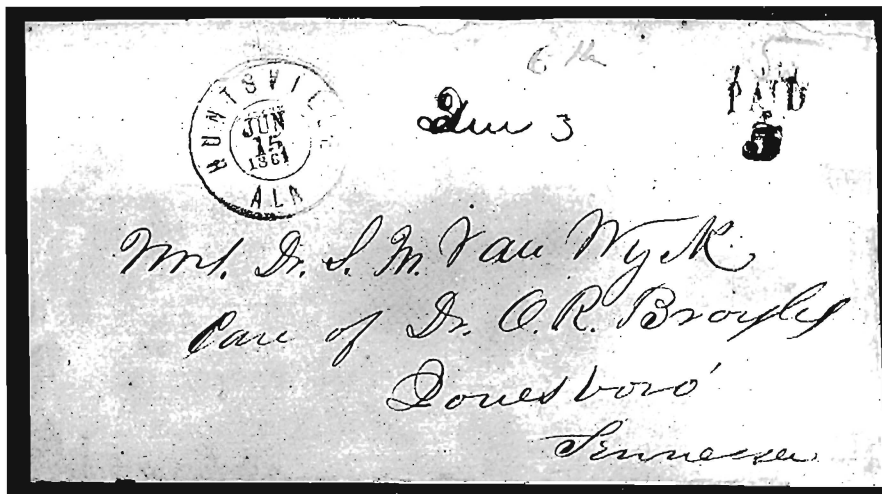 HUNTSVILLE
JUN
15
1861
ALA
Due 3
PAID
5
Mrs. Dr. S. M. Van Wyck
Care of Dr. O. R. Broyles
Jonesboro'
Tennessee